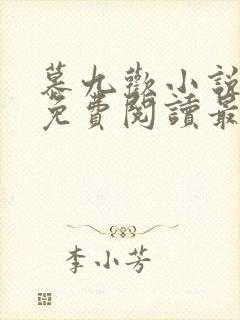 慕九歡小說
免費閱讀最
李小芳